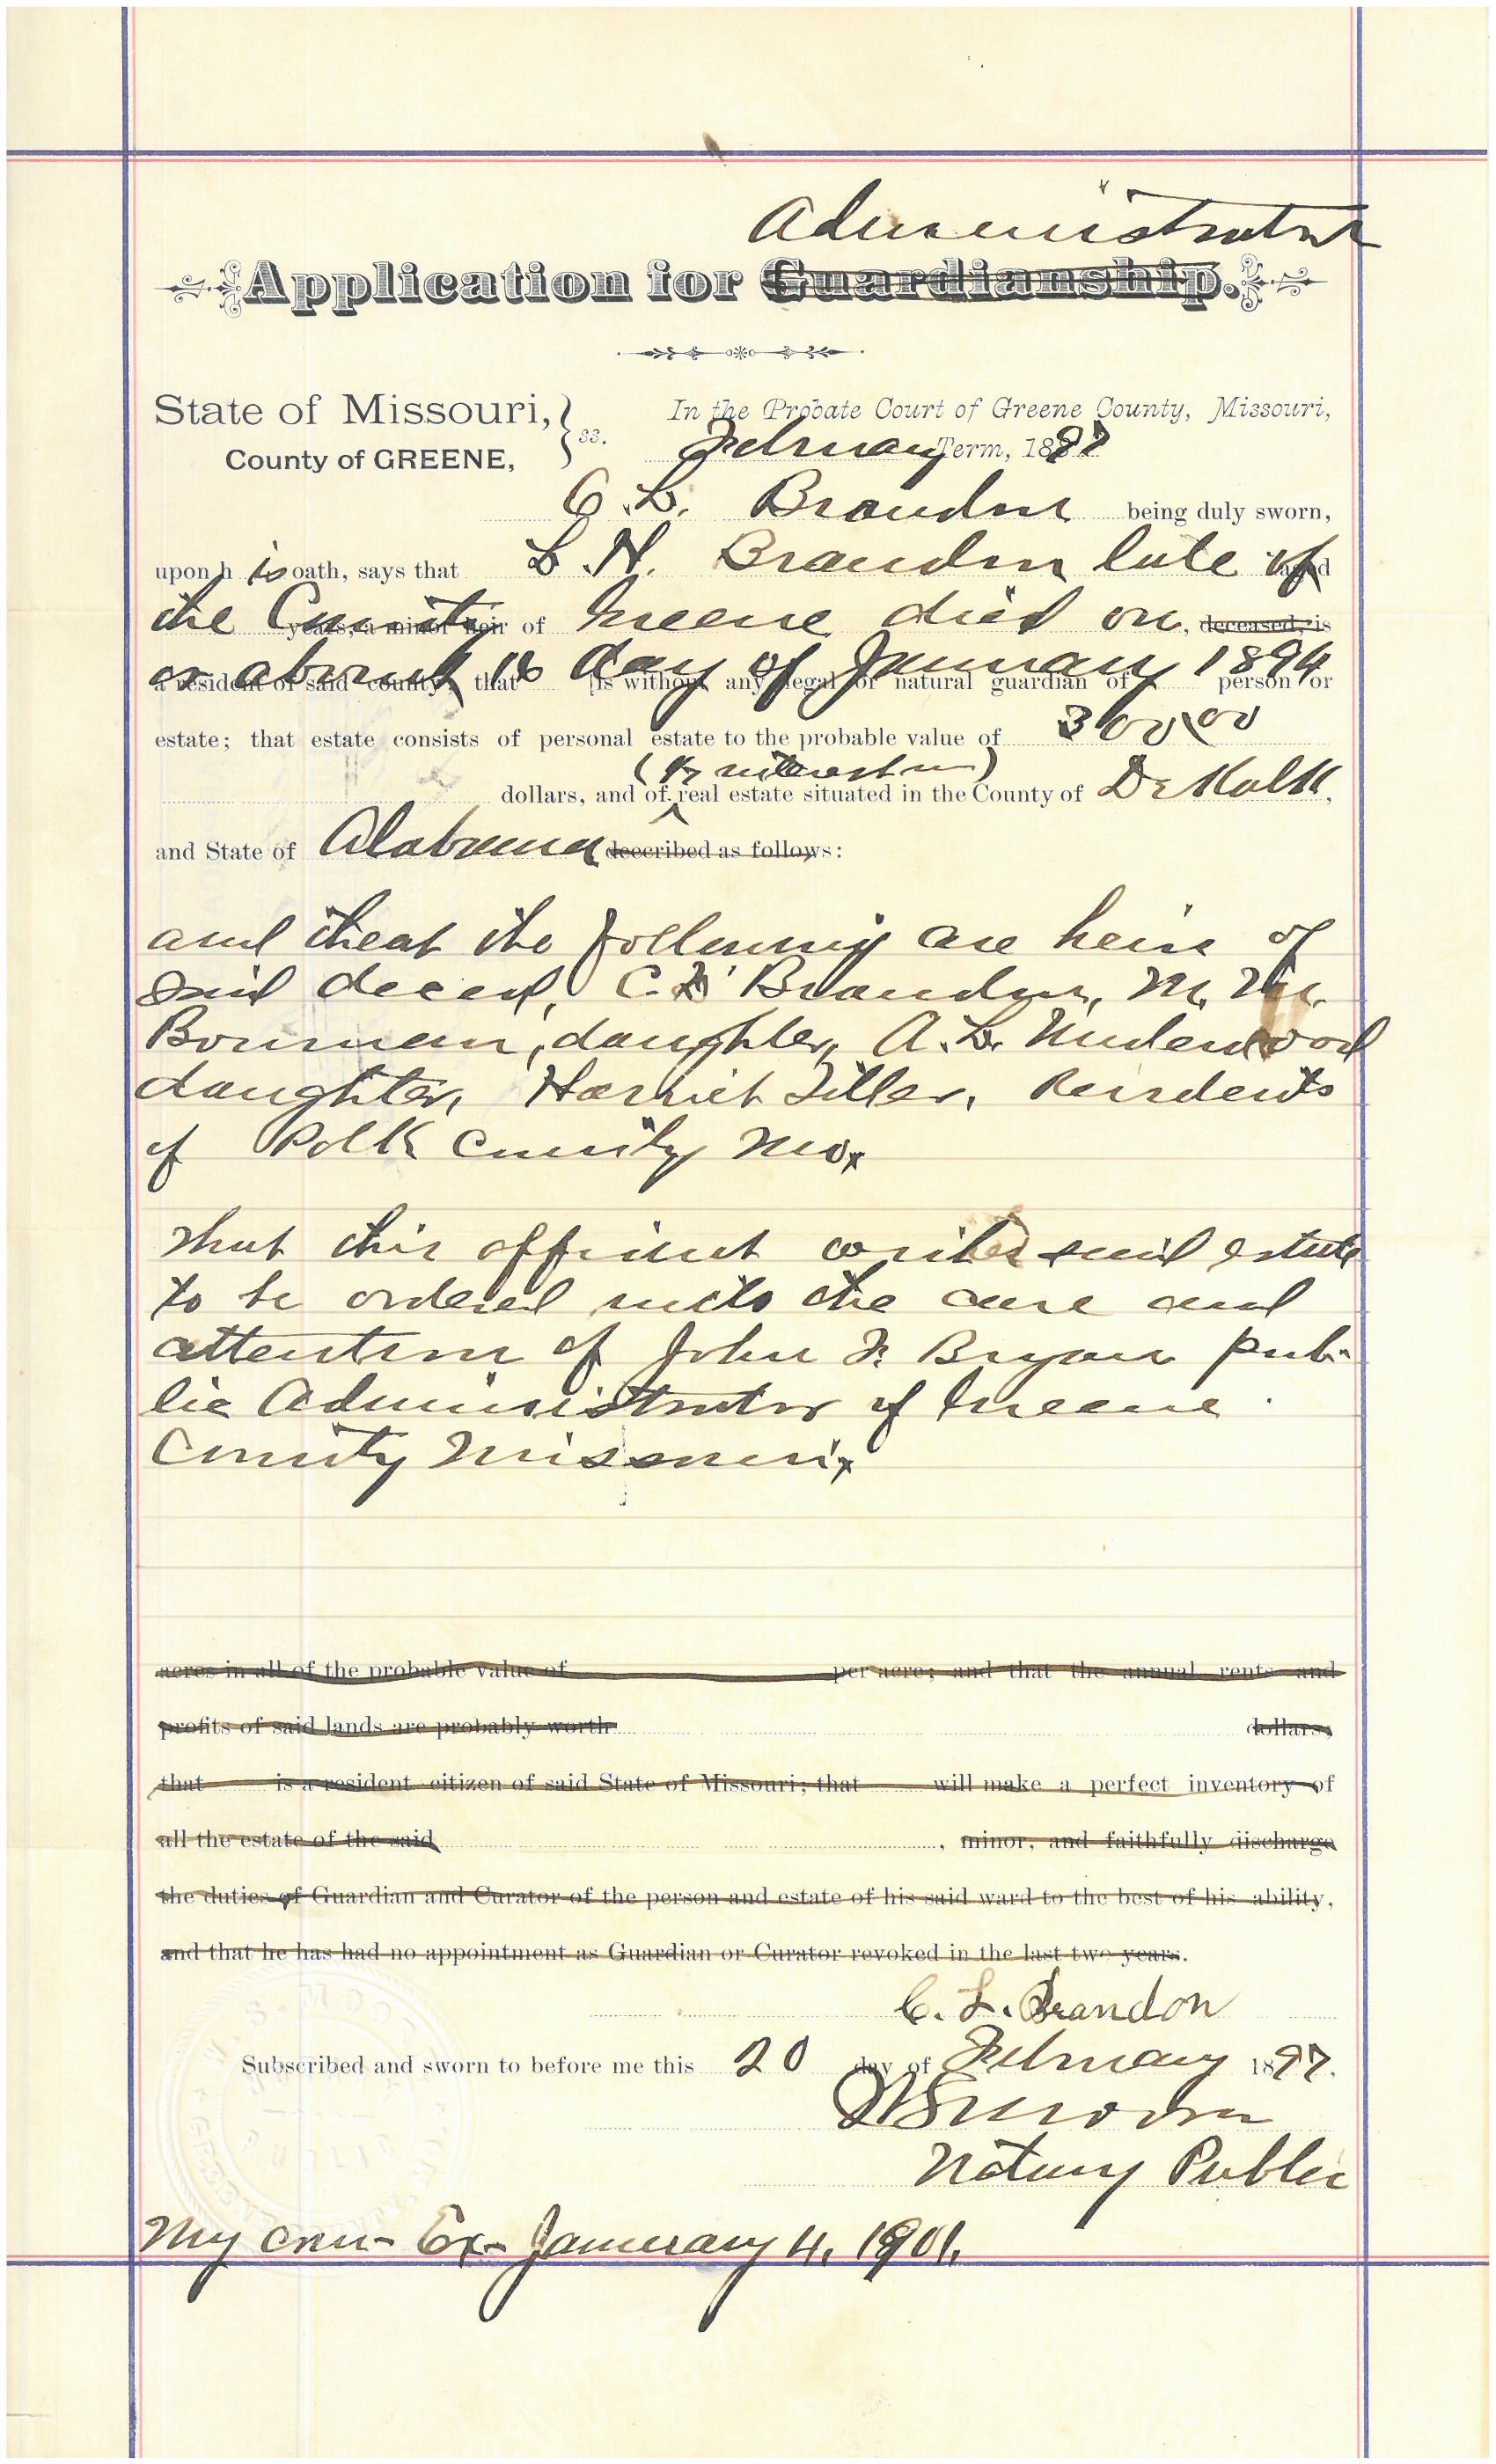 Administrator
Application for Guardianship.
State of Missouri, ss. In the Probate Court of Greene County, Missouri,
County of GREENE, February Term, 1897
C. L. Brandon being duly sworn,
upon his oath, says that L. H. Brandon late of aged
the County years, a minor heir of Greene died on, deceased, is
or about 16 day of January 1894
a resident of said county; that is without any legal or natural guardian of person or
estate; that estate consists of personal estate to the probable value of 300.00
( interest in)
dollars, and of real estate situated in the County of DeKalb,
and State of Alabama described as follows:
and that the following are heirs of
said deceed, C. L. Brandon, M. M.
Bowman, daughter, A. L. Underwood
daughter, Harriet Tiller, Residents
of Polk County Mo.
That this affiant wishes said estate
to be ordered into the care and
attention of John F. Bryan pub-
lic Administrator of Greene
County Missouri.
acres in all of the probable value of per acre; and that the annual rents and
profits of said lands are probably worth dollars;
that is a resident citizen of said State of Missouri; that will make a perfect inventory of
all the estate of the said , minor, and faithfully discharge
the duties of Guardian and Curator of the person and estate of his said ward to the best of his ability,
and that he has had no appointment as Guardian or Curator revoked in the last two years.
C. L. Brandon
Subscribed and sworn to before me this 20 day of February 1897.
Notary Public
My com- Ex- January 4, 1901.